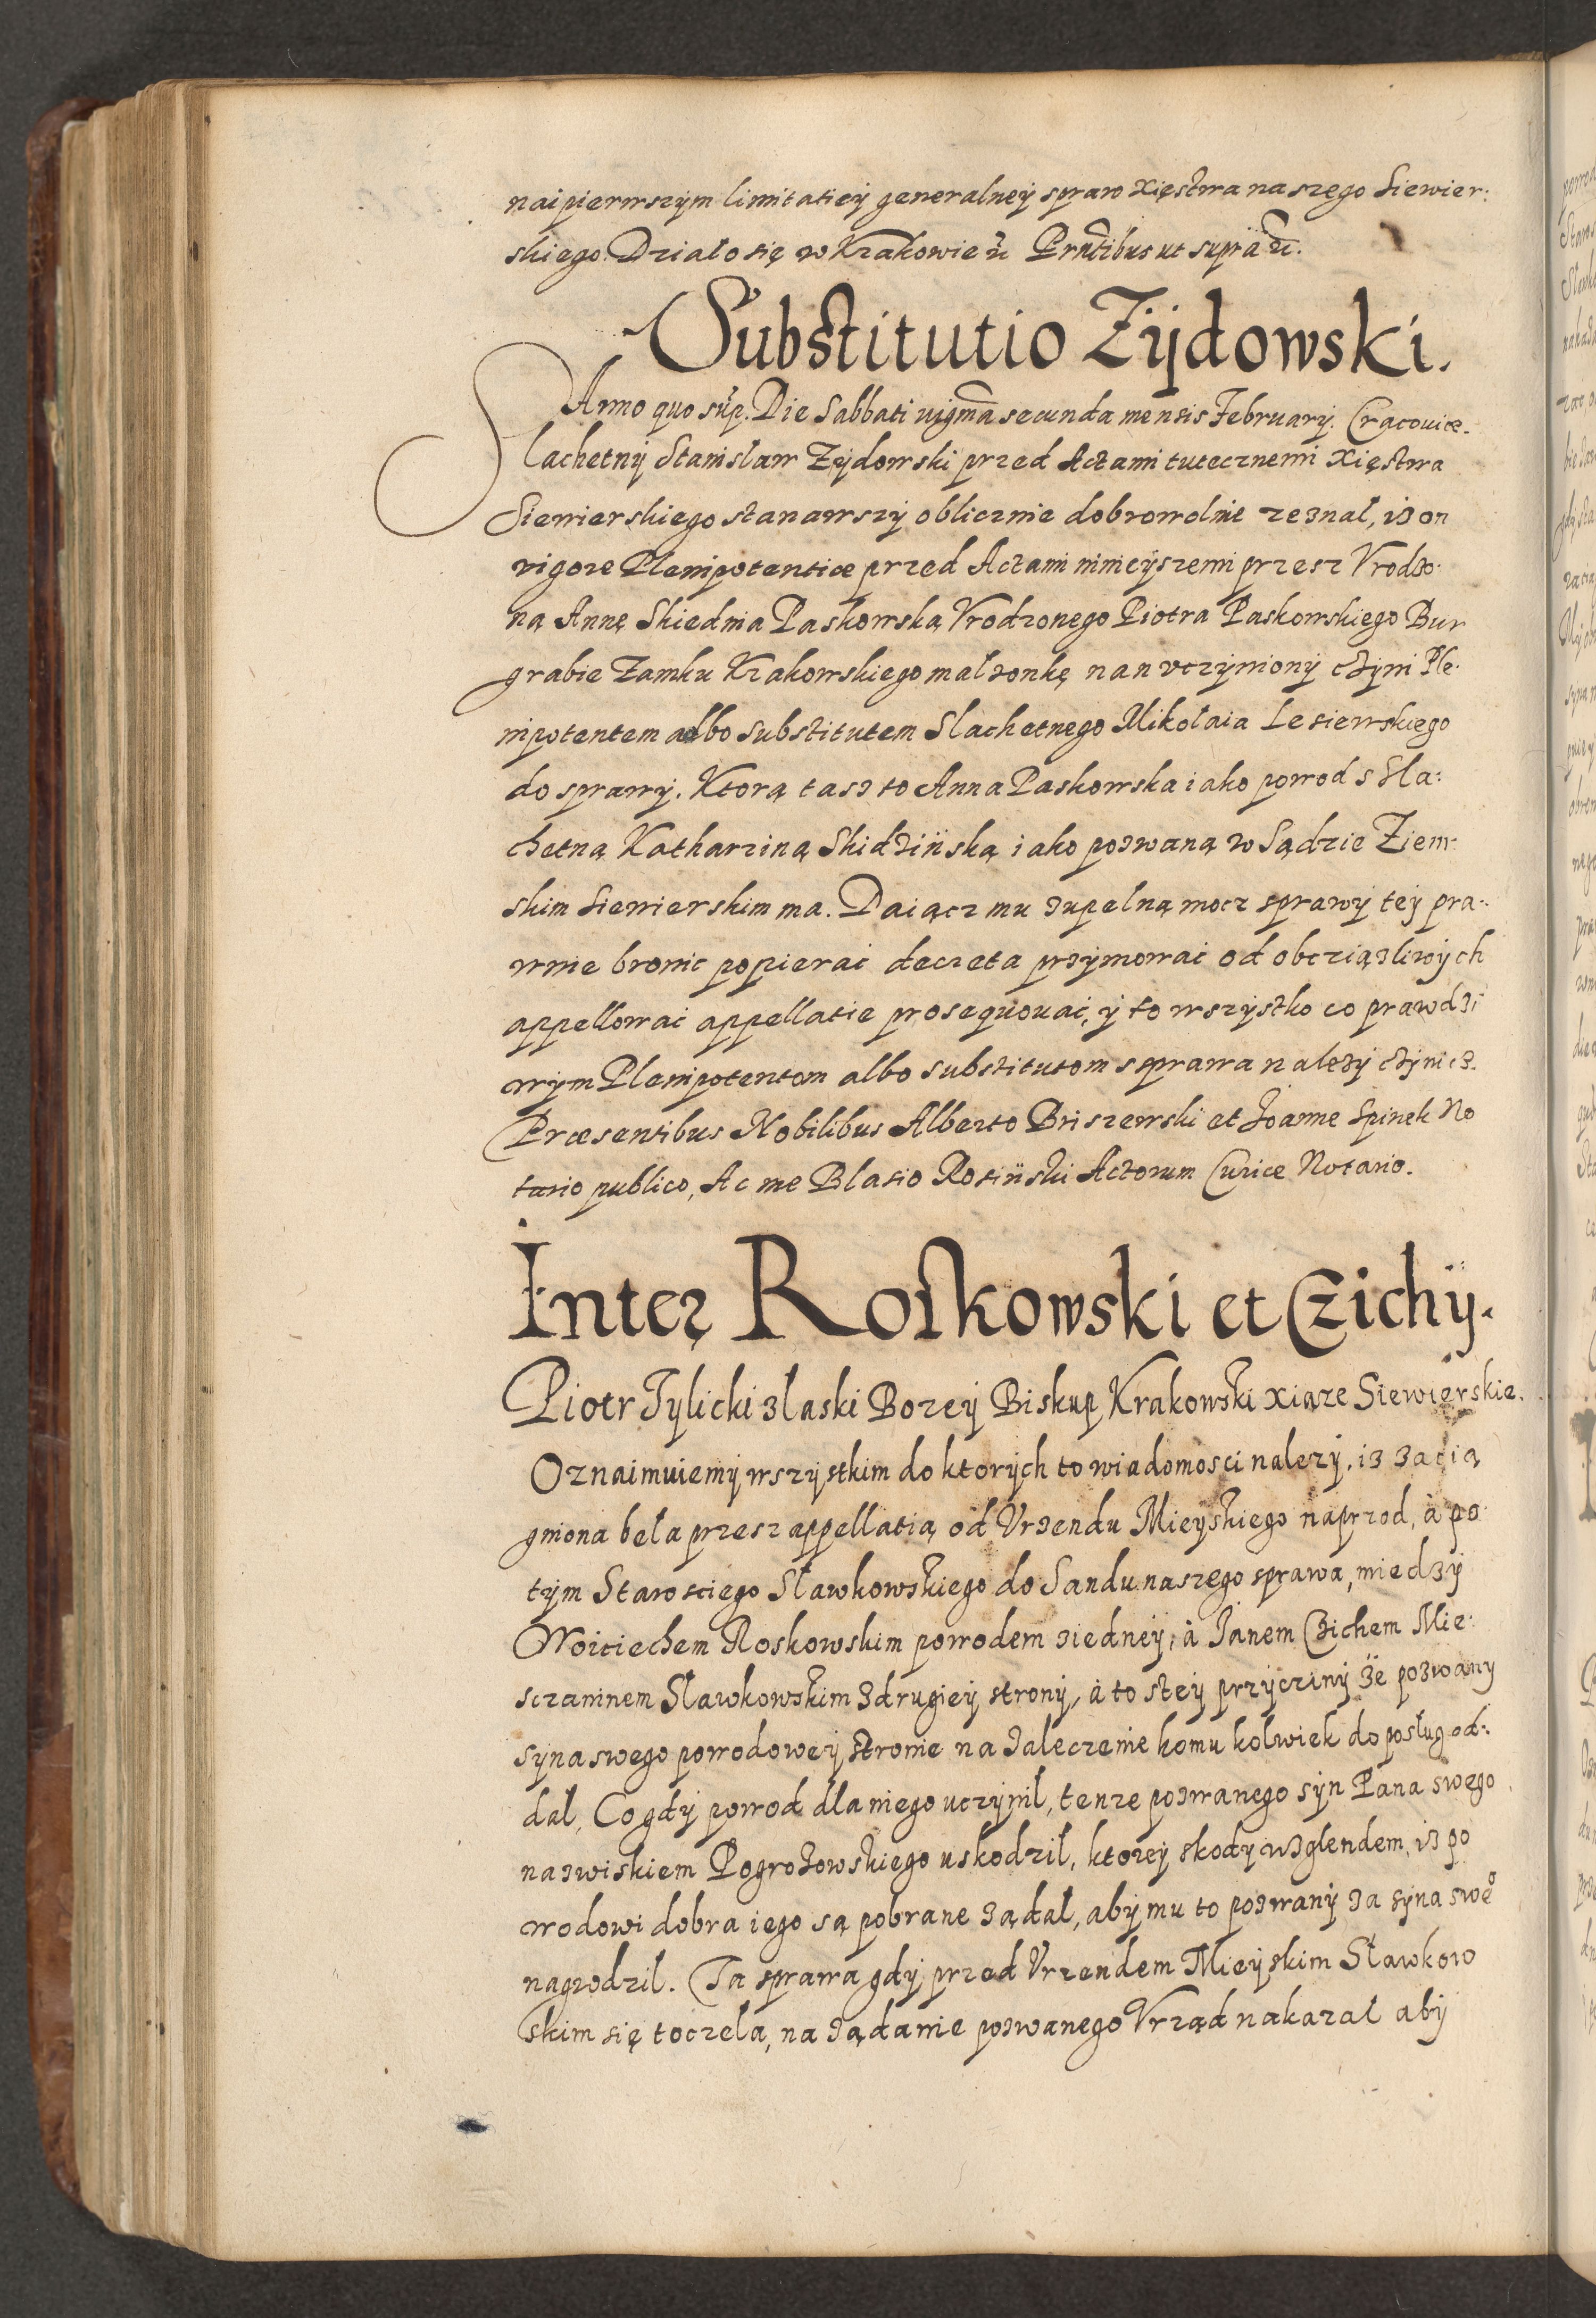 naipierwszym limitatiey generalney spraw Xięstwa naszego Siewier:
skiego. Działo się w Krakowie etc Prntibus ut supra etc.
Substitutio Zijdowski.
Anno quo sup. Die Sabbati vigma secunda mensis February. Cracoviæ.
Slachetny Stanislaw Zydowski przed Actami tutecznemi Xięstwa
Siewierskiego stanawszy oblicznie dobrowolnie zeznal, iz on
vigore Plenipotentiæ przed Actami ninieyszemi przesz Vrodzo-
ną Annę Skiednia Paskowską Vrodzonego Piotra Paskowskiego Bur
grabie Zamku Krakowskiego malzonkę nan vczyniony czyni Ple-
nipotentem albo Substitutem Slachetnego Mikołaia Lesiewskiego
do sprawy. Ktorą tasz to Anna Paskowska iako powod s Sla:
chetną Katharziną Skidzińską iako pozwaną w Sądzie Ziem-
skim Siewierskim ma. Daiącz mu zupelną mocz sprawy tey pra-
wnie bronic popierac decreta przymowac od obcziązliwych
appellowac appellatie prosequovac, y to wszystko co prawdzi
wym Plenipotentom albo substitutom s prawa nalezy czynicz.
Præsentibus Nobilibus Alberto Briszewski et Joanne Spinek No
tario publico, Ac me Blasio Rosiński Actorum Curiæ Notario.
Inter Roskowski et Czichy.
Piotr Tylicki z laski Bozey Biskup Krakowski xiąze Siewierskie.
Oznaimuiemy wszystkim do ktorych to wiadomosci nalezy, iz zacią
gniona bela przesz appellatią od Vrzendu Mieyskiego naprzod, à po
tym Starosciego Sławkowskiego do Sandu naszego sprawa, miedzy
Woiciechem Roskowskim powodem ziedney, à Janem Czichem Mie:
sczaninem Slawkowskim z drugiey strony, à to stey przyczyny ze pozwany
syna swego powodowey stronie na zaleczenie komu kolwiek do posług od:
dal, Co gdy powod dla niego uczynil, tenze pozwanego syn Pana swego
nazwiskiem Pogrozowskiego uskodzil, ktorey skody wzglendem, iz po
wodowi dobra iego są pobrane ządal, aby mu to pozwany za syna sweo
nagrodzil. Ta sprawa gdy przed Vrzendem Mieyskim Sławkow
skim się toczela, na ządanie pozwanego Vrząd nakazał aby